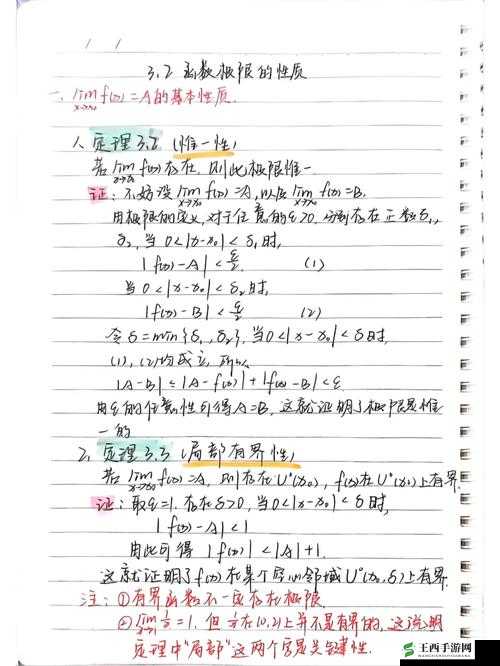 3.2 函数极限的性质
一、lim x→x₀ f(x)=A的基本性质.
1. 定理3.2 (惟一性)
若 lim x→x₀ f(x)存在, 则此极限惟一.
证: 不妨设 lim x→x₀ f(x)=A, 以及 lim x→x₀ f(x)=B.
用极限的定义, 对于任意的ε>0, 分别存在正数δ₁,
δ₂, 当 0<|x-x₀|<δ₁时,
|f(x)-A|<ε/2. (1)
当 0<|x-x₀|<δ₂时,
|f(x)-B|<ε/2 (2)
令δ=min{δ₁,δ₂}, 当0<|x-x₀|<δ时,
(1), (2)均成立, 所以
|A-B|≤|A-f(x)|+|f(x)-B|<ε
由ε的任意性可得A=B, 这就证明了极限是惟
一的
2. 定理3.3 (局部有界性)
若 lim x→x₀ f(x)=A, 则存在U°(x₀), f(x)在U°(x₀)上有界.
证: 取ε=1. 存在δ>0, 当0<|x-x₀|<δ时,
|f(x)-A|<1
由此可得 |f(x)|<|A|+1.
这就证明了f(x)在某个空心邻域U°(x₀,δ)上有界.
注: ①有界函数不一定存在极限
②lim x→1 1/x=1. 但 1/x在(0,2)上并不是有界的, 这说明
定理中"局部"这两个字是关键性.
王西手游网